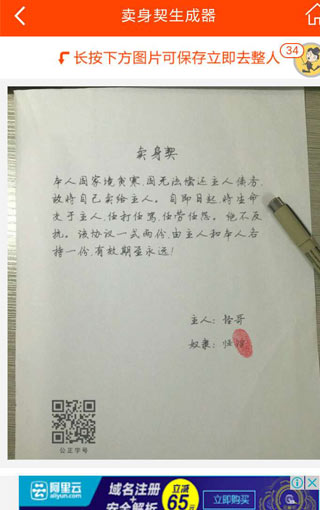 卖身契生成器
长按下方图片可保存立即去整人
34
卖身契
本人因家境贫寒,因无法偿还主人债务,
故将自己卖给主人。自即日起,将生命
交于主人,任打任骂,任劳任怨。绝不反
抗。该协议一式两份,由主人和本人各
持一份,有效期至永远!
主人:
奴隶:
公正字号
阿里云
aliyun.com
域名注册
+
安全解析
立减
65元
立即购买